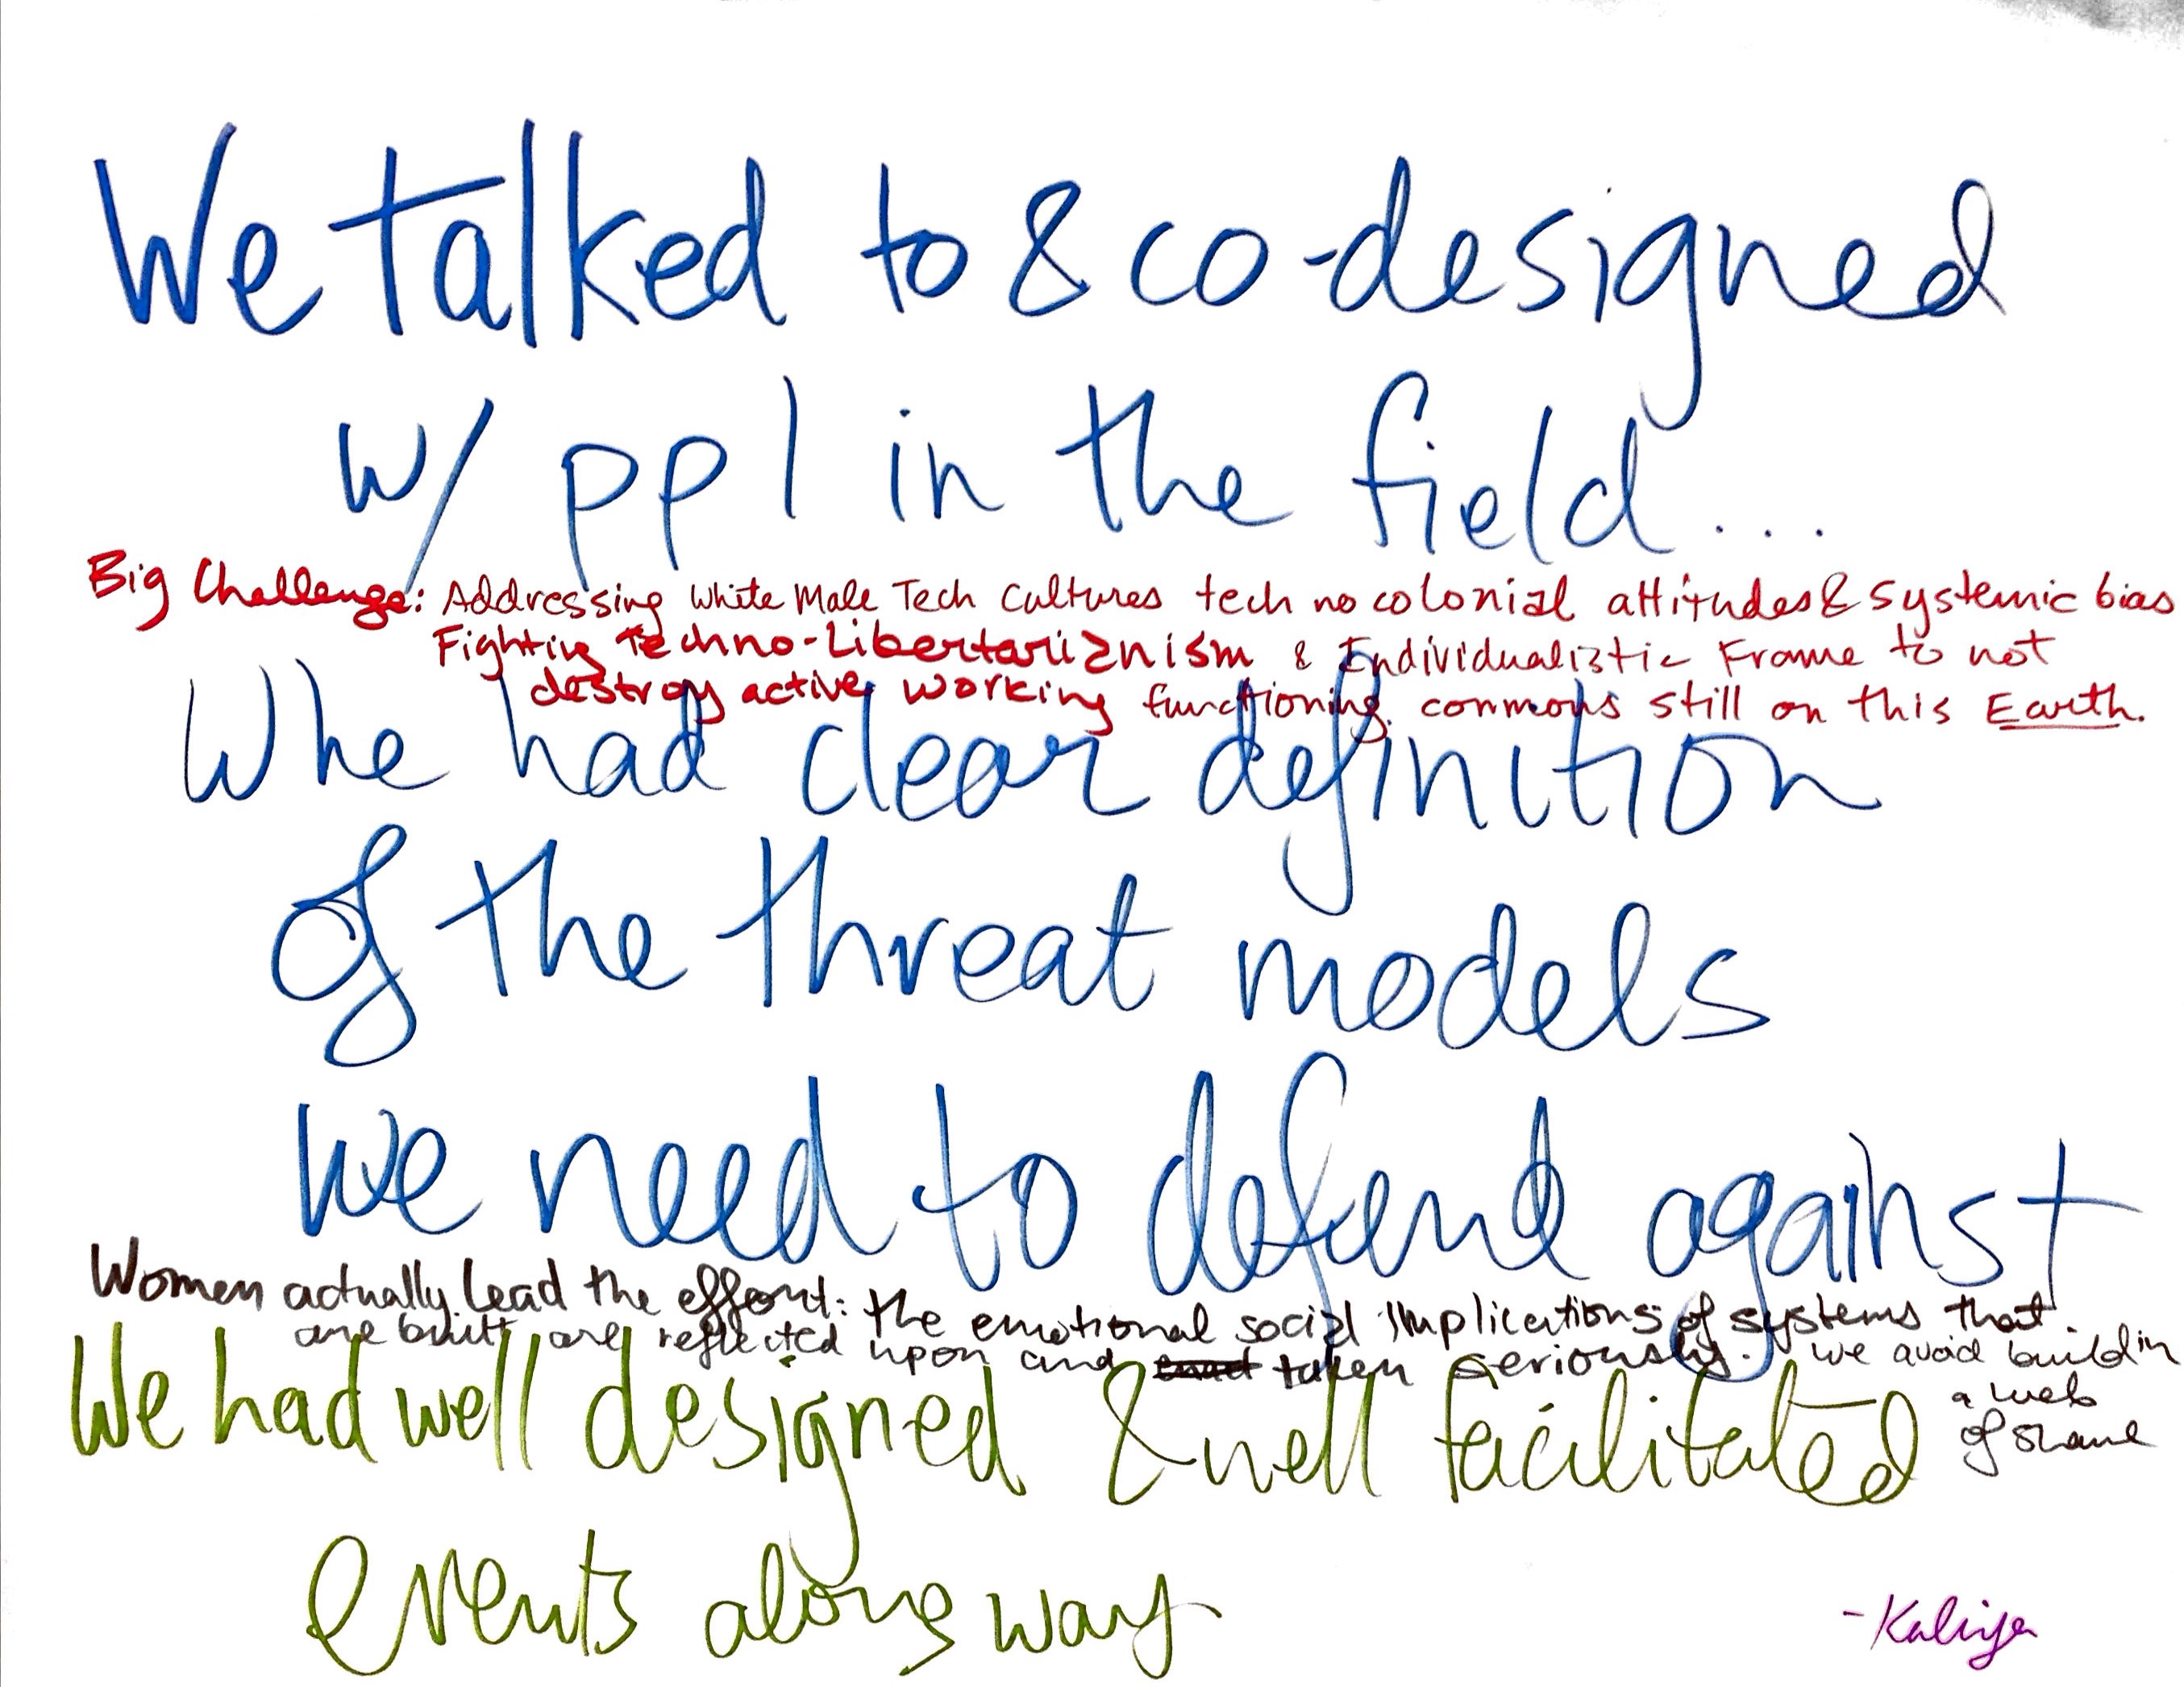 We talked to & co-designed
w/ ppl in the field...
Big Challenge: Addressing White Male Tech Cultures tech no colonial attitudes & systemic bias
Fighting Techno-Libertarianism & Individualistic Frame to not
destroy active working functioning commons still on this Earth.
Whe had clear definition
of the threat models
we need to defend against
Women actually lead the effort: the emotional social implications of systems that
are built are reflected upon and taken seriously. we avoid buildin
a web
of shame
We had well designed & well facilitated
events along way
-Kaliya